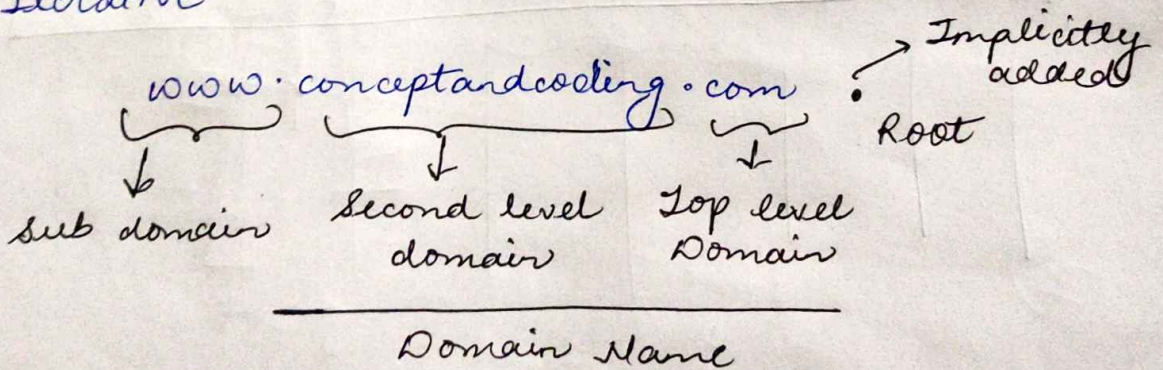 www.conceptandcoding.com .
Implicitly
added
Root
Sub domain
Second level
domain
Top level
Domain
Domain Name